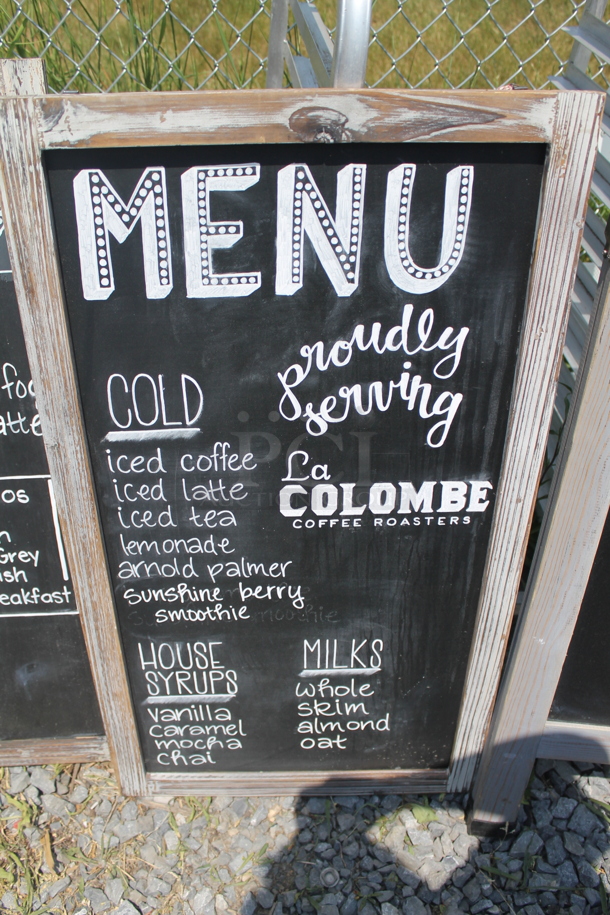 MENU
proudly
serving
La
COLOMBE
COFFEE ROASTERS
COLD
iced coffee
iced latte
iced tea
lemonade
arnold palmer
sunshine berry
smoothie
HOUSE
SYRUPS
vanilla
caramel
mocha
chai
MILKS
whole
skim
almond
oat